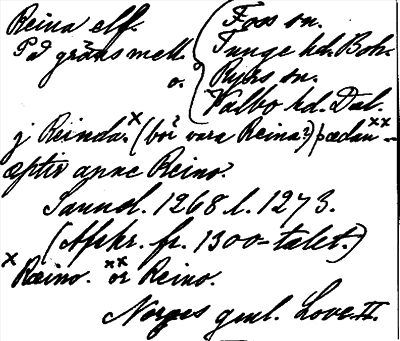 Reina elf.
På gräns mell. o.
Foss sn.
Tunge hd. Boh.
Ryrs sn.
Valbo hd. Dal.
j Reinda.x (bör vara Reina?) þædan xx --
æptir apne Reino?
Sannol. 1268 l. 1273.
(Afskr. fr. 1300-talet.)
x Ræino. xx or Reino.
Norges gml. Love. II.